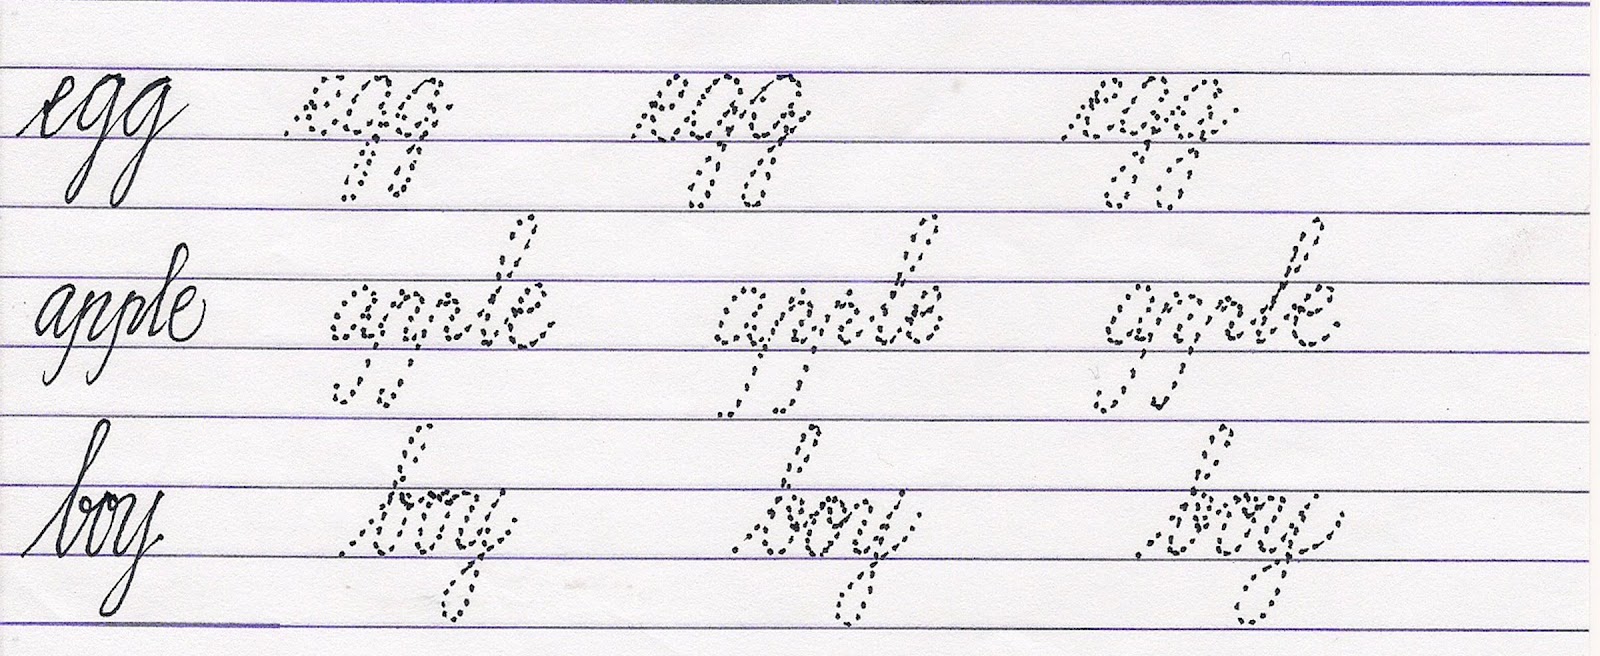 egg egg egg egg
apple apple apple apple
boy boy boy boy